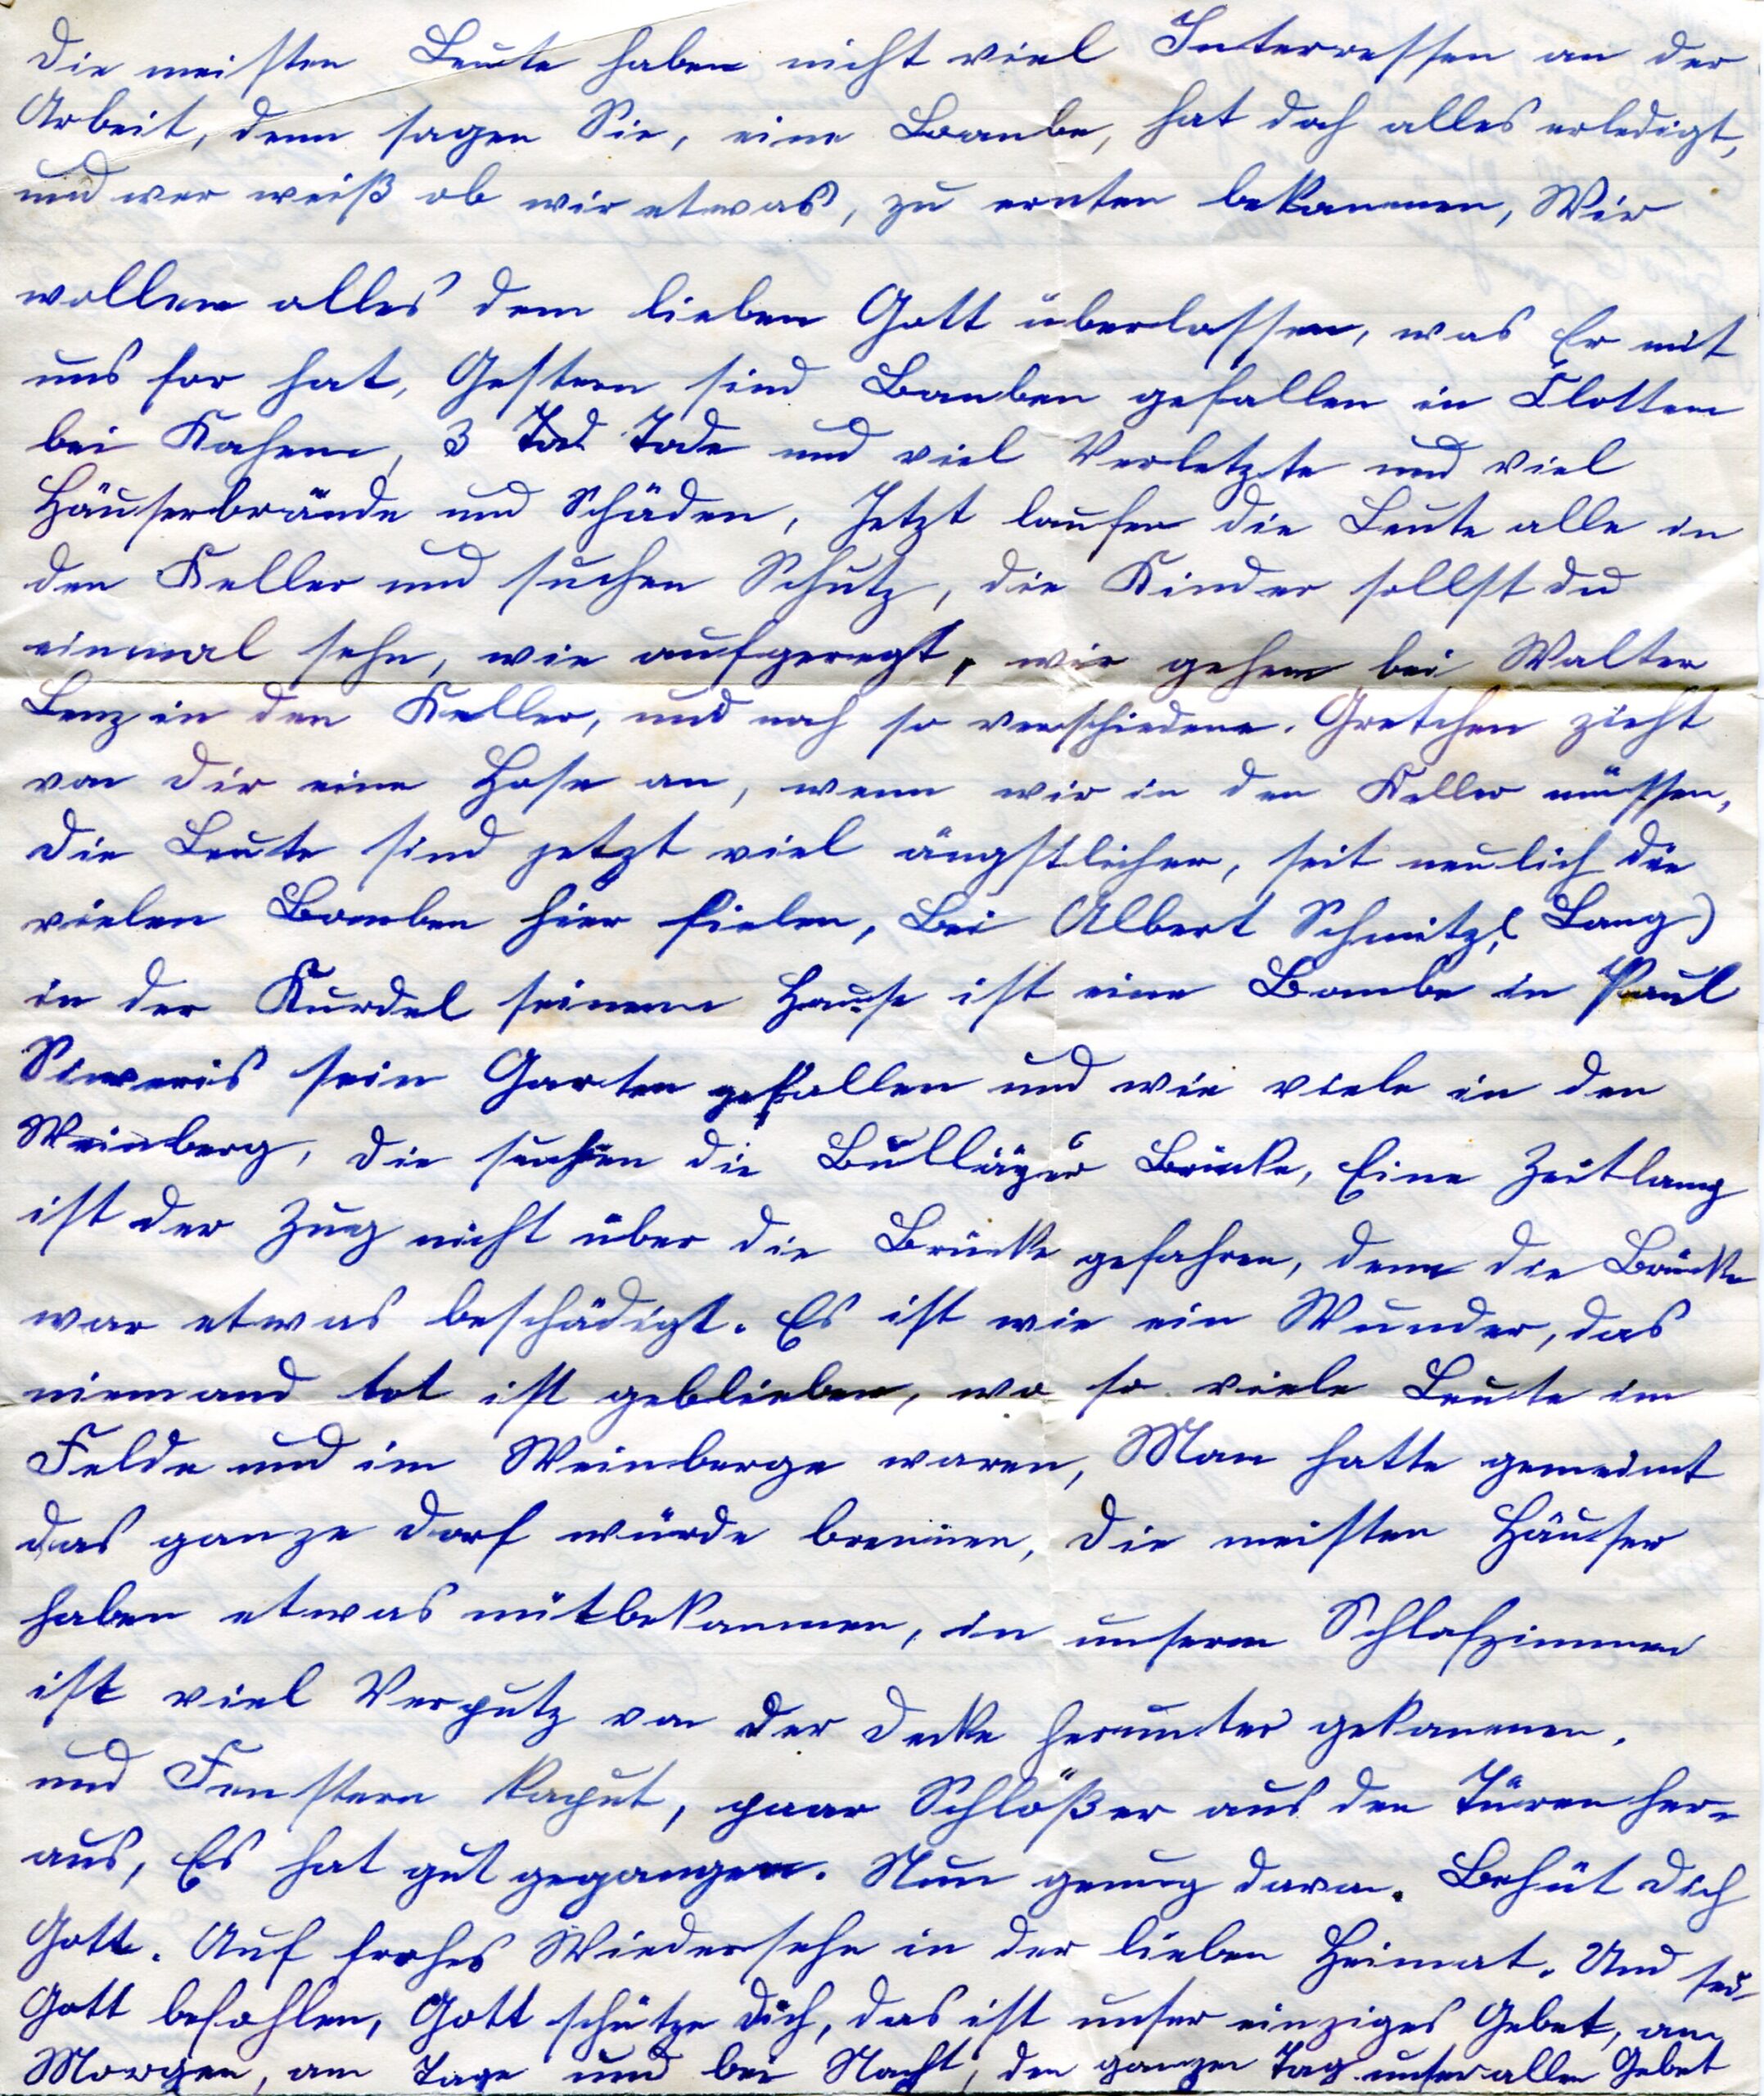 Die meisten Leute haben nicht viel Interressen an der
Arbeit, denn sagen Sie, eine Bombe, hat doch alles erledigt,
und wer weiß ob wir etwas, zu ernten bekommen, Wir
wollen alles dem lieben Gott überlassen, was Er mit
uns for hat, Gestern sind Bomben gefallen in Klotten
bei Kochem, 3 Tod Tode und viel Verletzte und viel
Häuserbrände und Schäden, Jetzt laufen die Leute alle in
den Keller und suchen Schutz, die Kinder sollst du
einmal sehn, wie aufgeregt, wir gehen bei Walter
Lenz in den Keller, und noch so verschiedene. Gretchen zieht
von dir eine Hose an, wenn wir in den Keller müssen,
Die Leute sind jetzt viel ängstlicher, seit neulich die
vielen Bomben hier fielen, Bei Albert Schmitz, (Lang)
in der Kurdel seinem Hause ist eine Bombe in Paul
sein Garten gefallen und wie viele in den
Weinberg, die suchen die Bullayer Brücke, Eine Zeitlang
ist der Zug nicht über die Brücke gefahren, denn die Brücke
war etwas beschädigt. Es ist wie ein Wunder, das
niemand tot ist geblieben, wo so viele Leute im
Felde und im Weinberge waren, Man hatte gemeint
das ganze Dorf würde brennen, Die meisten Häuser
haben etwas mitbekommen, in unserm Schlafzimmer
ist viel Verputz von der Decke herunter gekommen,
und Fenstern kaput, paar Schlößer aus den Türen her-
aus, Es hat gut gegangen. Nun genug davon. Behüt dich
Gott. Auf frohes Wiedersehn in der lieben Heimat. Und sei
Gott befohlen, Gott schütze dich, das ist unser einziges Gebet, am
Morgen, am Tage und bei Nacht, den ganzen Tag unser aller Gebet